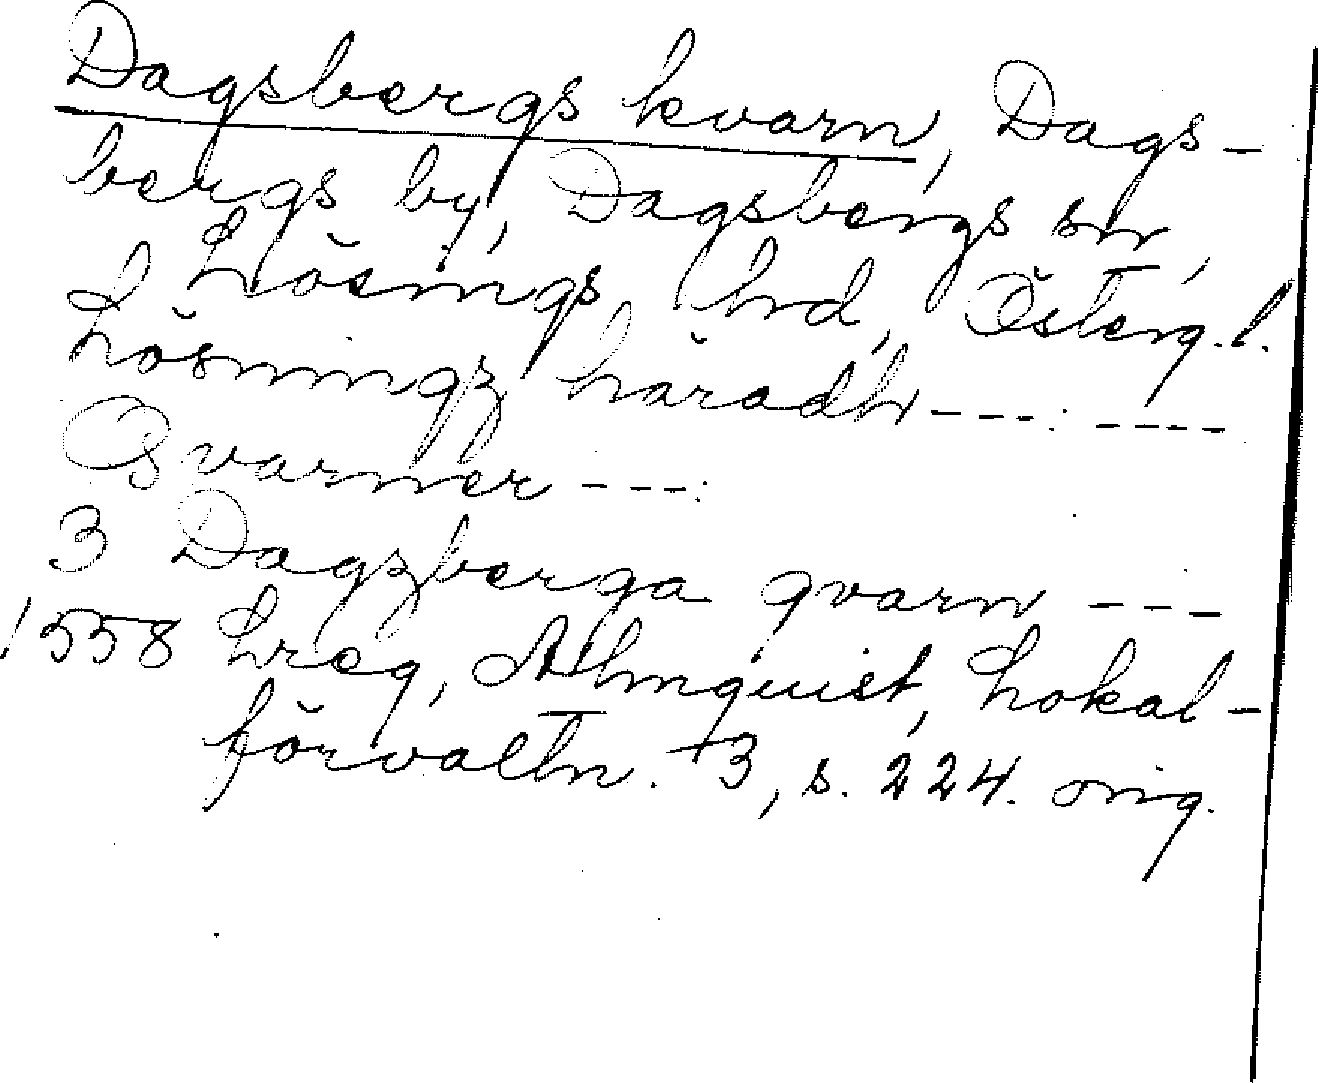 Dagsbergs kvarn, Dags-
bergs by, Dagsbergs sn,
Lösings hd, Österg.l.
Lösningz häradh ---: ----
Qvarner ---:
3 Dagzberga qvarn ---
1558 Lreg, Almquist, Lokal-
förvaltn. 3, s. 224. orig.